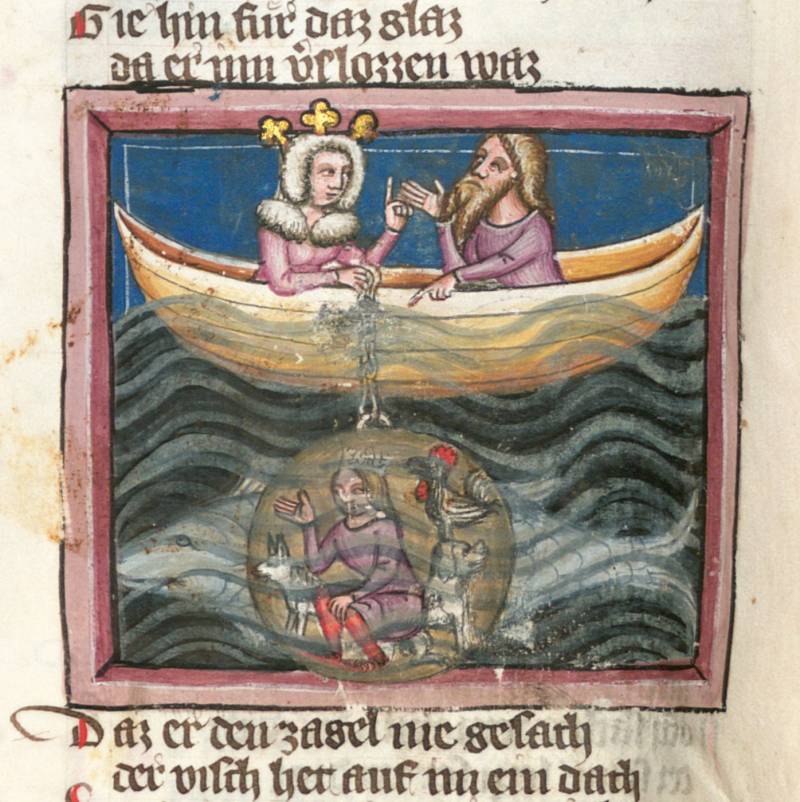 Gie hin für daz glaz
da er inn v̊slozzen waz
Daz er den zagel nie gesach
der visch het auf im ein dach